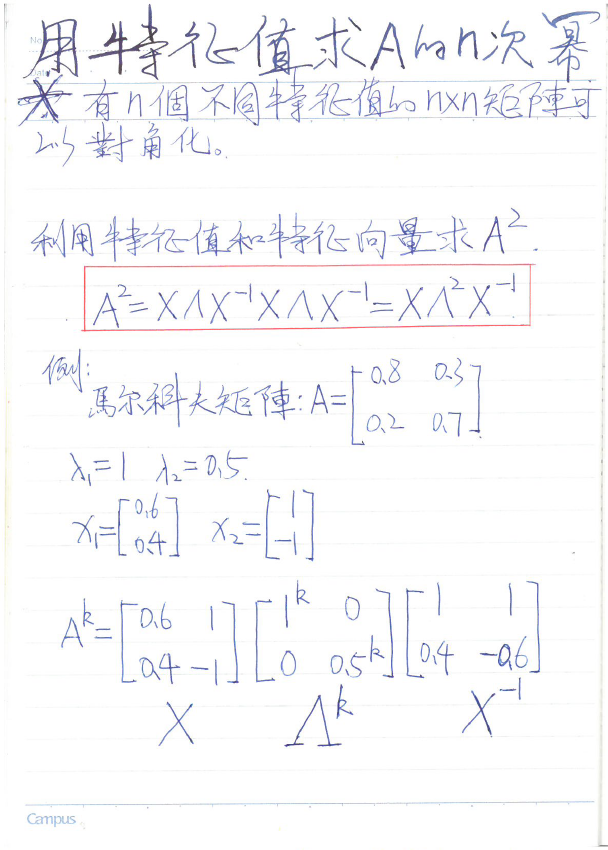 No.
Date
用特征值求A的n次冪
* 有n個不同特征值的n×n矩陣可
以對角化。
利用特征值和特征向量求A².
A²=XΛX⁻¹XΛX⁻¹=XΛ²X⁻¹
例:
馬尔科夫矩陣:A=[0.8 0.3
0.2 0.7]
λ₁=1 λ₂=0.5.
x₁=[0.6 x₂=[1
0.4] -1]
Aᵏ=[0.6 1 [1ᵏ 0 [1 1
0.4 -1] 0 0.5ᵏ] 0.4 -0.6]
X Λᵏ X⁻¹
Campus